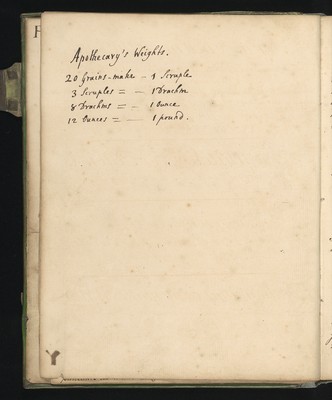 Apothecary's Weights.
20 Grains - make - 1 Scruple
3 Scruples = - 1 Drachm
8 Drachms = - 1 Ounce
12 Ounces = — 1 pound.